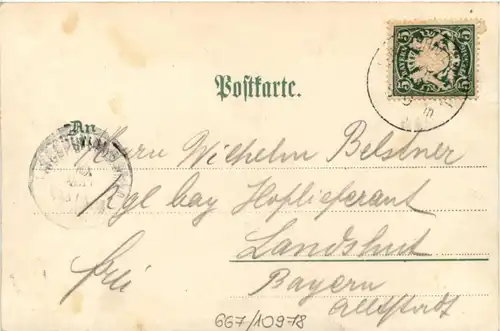 Postkarte.
An
Herrn Wilhelm Belstner
Kgl bay Hoflieferant
Landshut
frei
Bayern
Altstadt
667/10978
5 5